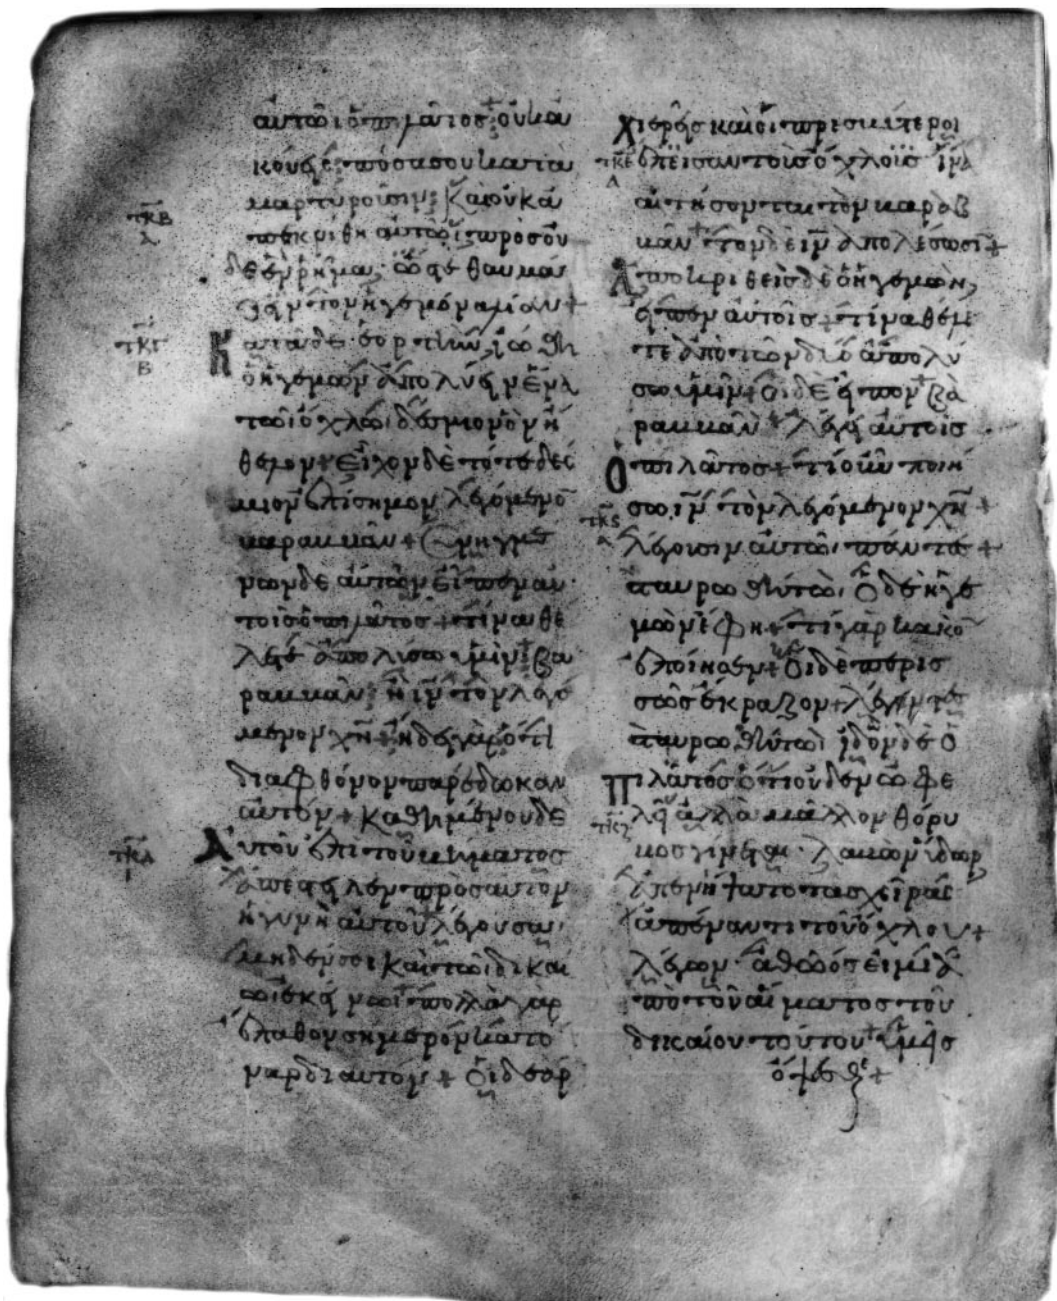 αὐτῶι ὁ πιλάτος οὐκ ἀ
κούεις πόσα σου κατα
μαρτυροῦσιν καὶ οὐκ ἀ
τκβ
πεκρίθη αὐτῶι πρὸς οὐ
δε ἓν ῥῆμα ὥστε θαυμά
ζειν τὸν ἡγεμόνα λίαν +
τκγ
β
Κατὰ δὲ ἑορτὴν εἰώθει
ὁ ἡγεμὼν ἀπολύειν ἕνα
τῶι ὄχλωι δέσμιον ὃν ἤ
θελον + εἶχον δὲ τότε δέσ
μιον ἐπίσημον λεγόμενο
βαραββᾶν + συνηγμέ
νων δὲ αὐτῶν εἶπεν αὐ
τοῖς ὁ πιλάτος + τίνα θέ
λετε ἀπολύσω ὑμῖν βα
ραββᾶν ἢ ιν τὸν λεγό
μενον χν + ἤδει γὰρ ὅτι
διὰ φθόνον παρέδωκαν
αὐτόν + καθημένου δὲ
τκδ
ι
Αὐτοῦ ἐπὶ τοῦ βήματος
ἀπέστειλεν πρὸς αὐτὸν
ἡ γυνὴ αὐτοῦ λέγουσα
μηδέν σοι καὶ τῶι δικαί
ωι ἐκείνωι πολλὰ γὰρ
ἔπαθον σήμερον κατ ὀ
ναρ δι αὐτόν + οἱ δὲ ἀρ
χιερεῖς καὶ οἱ πρεσβύτεροι
τκε
α
ἔπεισαν τοὺς ὄχλους ἵνα
αἰτήσονται τὸν βαραβ
βᾶν τὸν δὲ ιν ἀπολέσωσι +
Ἀποκριθεὶς δὲ ὁ ἡγεμὼν
εἶπεν αὐτοῖς + τίνα θέλε
τε ἀπὸ τῶν δύο ἀπολύ
σω ὑμῖν + οἱ δὲ εἶπον βα
ραββᾶν + λέγει αὐτοῖς
Ὁ πιλάτος + τί οὖν ποιή
σω ιν τὸν λεγόμενον χν +
τκς
α
λέγουσιν αὐτῶι πάντες +
σταυρωθήτω ὁ δὲ ἡγε
μὼν ἔφη + τί γὰρ κακὸ
ἐποίησεν + οἱ δὲ περισ
σῶς ἔκραζον + λέγοντες
σταυρωθήτω ἰδὼν δὲ ὁ
Πιλάτος ὅτι οὐδὲν ὠφε
λεῖ ἀλλὰ μᾶλλον θόρυ
τκζ
βος γίνεται λαβὼν ὕδωρ
ἀπενίψατο τὰς χεῖρας
ἀπέναντι τοῦ ὄχλου +
λέγων ἀθῶός εἰμι ἀ
πὸ τοῦ αἵματος τοῦ
δικαίου τούτου + ὑμεῖς
ὄψεσθε +